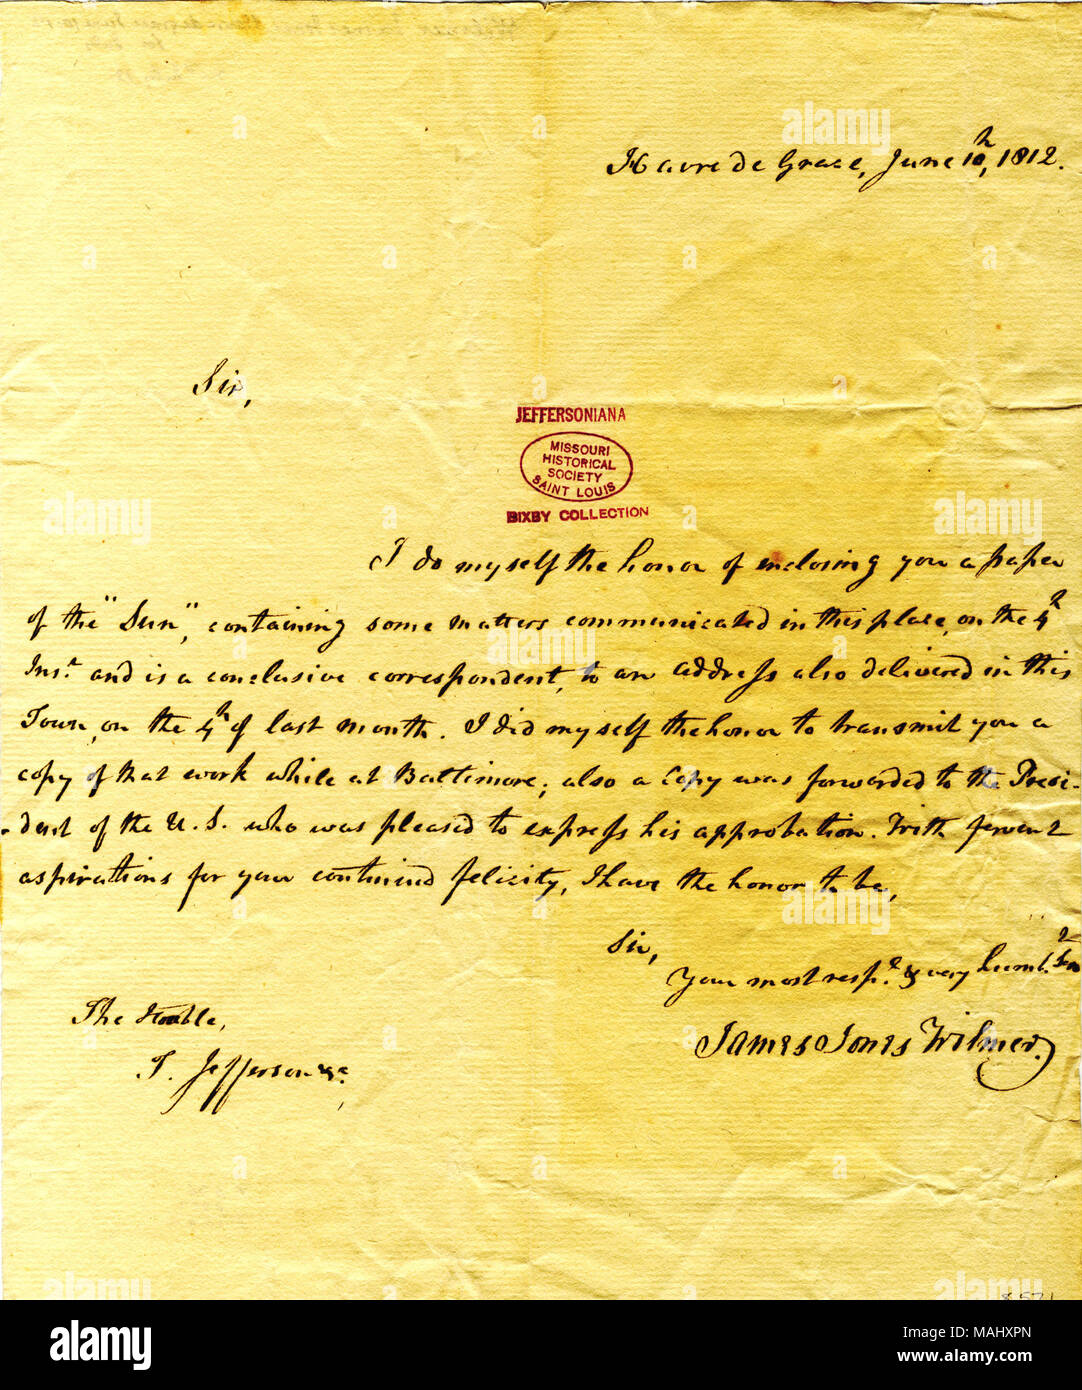 Havre de Grace, June 10,h 1812.
Sir,
JEFFERSONIANA
MISSOURI
HISTORICAL
SOCIETY
SAINT LOUIS
BIXBY COLLECTION
I do myself the honor of inclosing you a paper
of the "Sun", containing some matters communicated in this place, on the 4h
Inst. and is a conclusive correspondent, to an address also delivered in this
Town, on the 4h of last month. I did myself the honor to transmit you a
copy of that work while at Baltimore; also a Copy was forwarded to the Presi-
-dent of the U.S. who was pleased to express his approbation. With fervent
aspirations for your continued felicity, I have the honor to be,
Sir,
Your most resp.e & very huml.
The Honble,
James Jones Wilmer.
T. Jefferson &c.
alamy
Image ID: MAHXPN
www.alamy.com